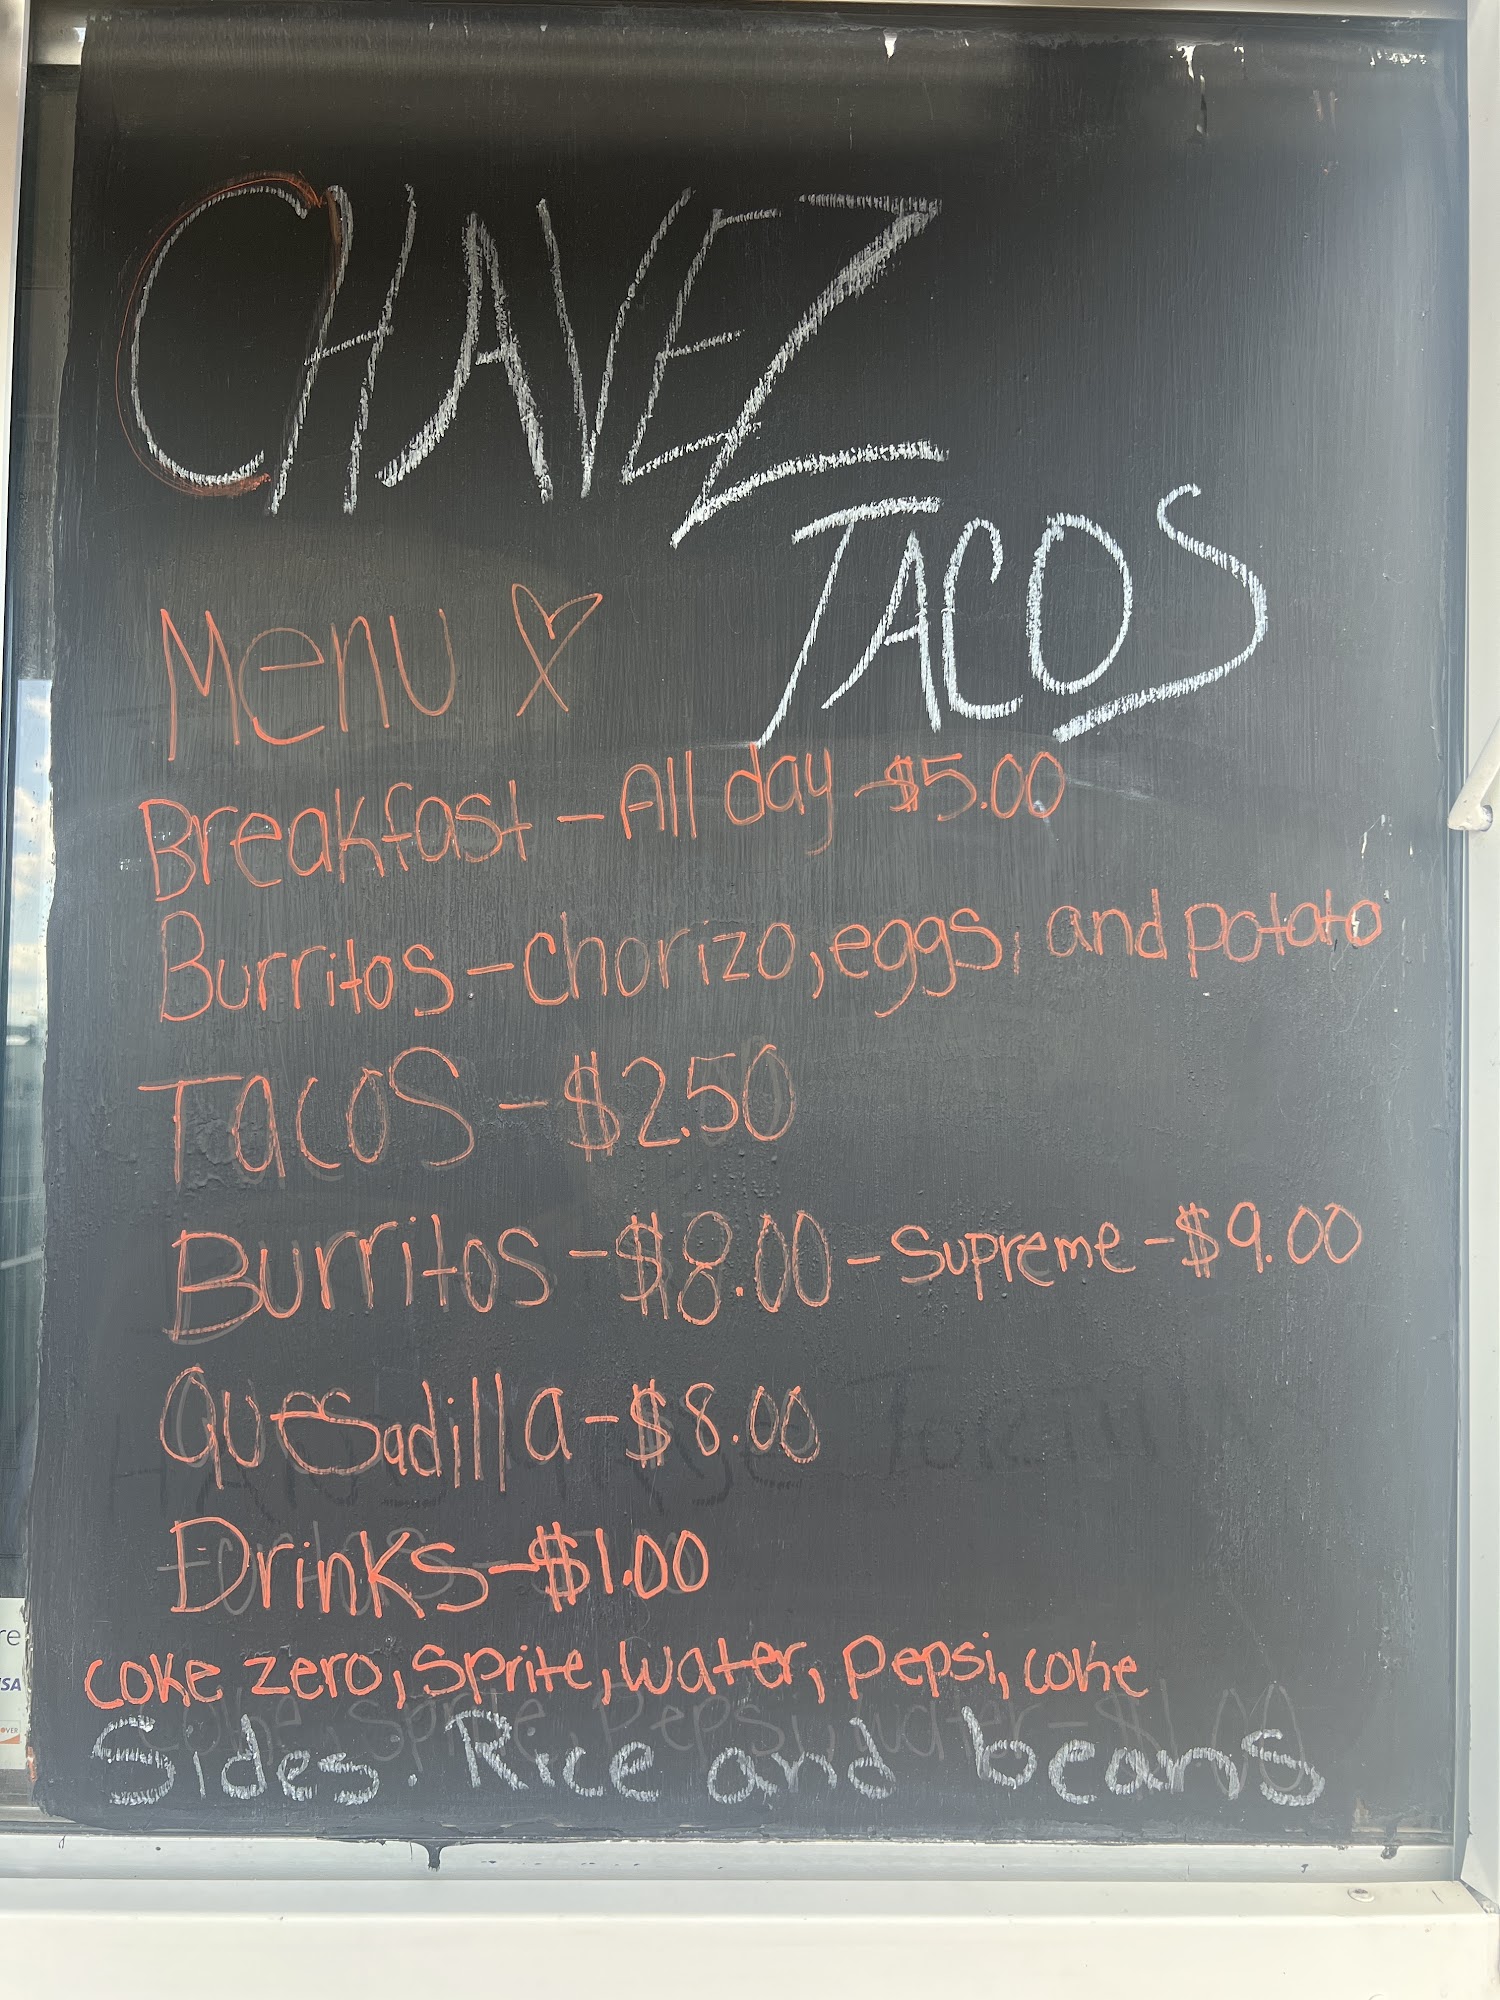 CHAVEZ
TACOS
Menu
Breakfast - All day - $5.00
Burritos - chorizo, eggs, and potato
TACOS - $2.50
Burritos - $8.00 - Supreme - $9.00
Quesadilla - $8.00
Drinks - $1.00
coke zero, Sprite, water, Pepsi, coke
Sides. Rice and beans